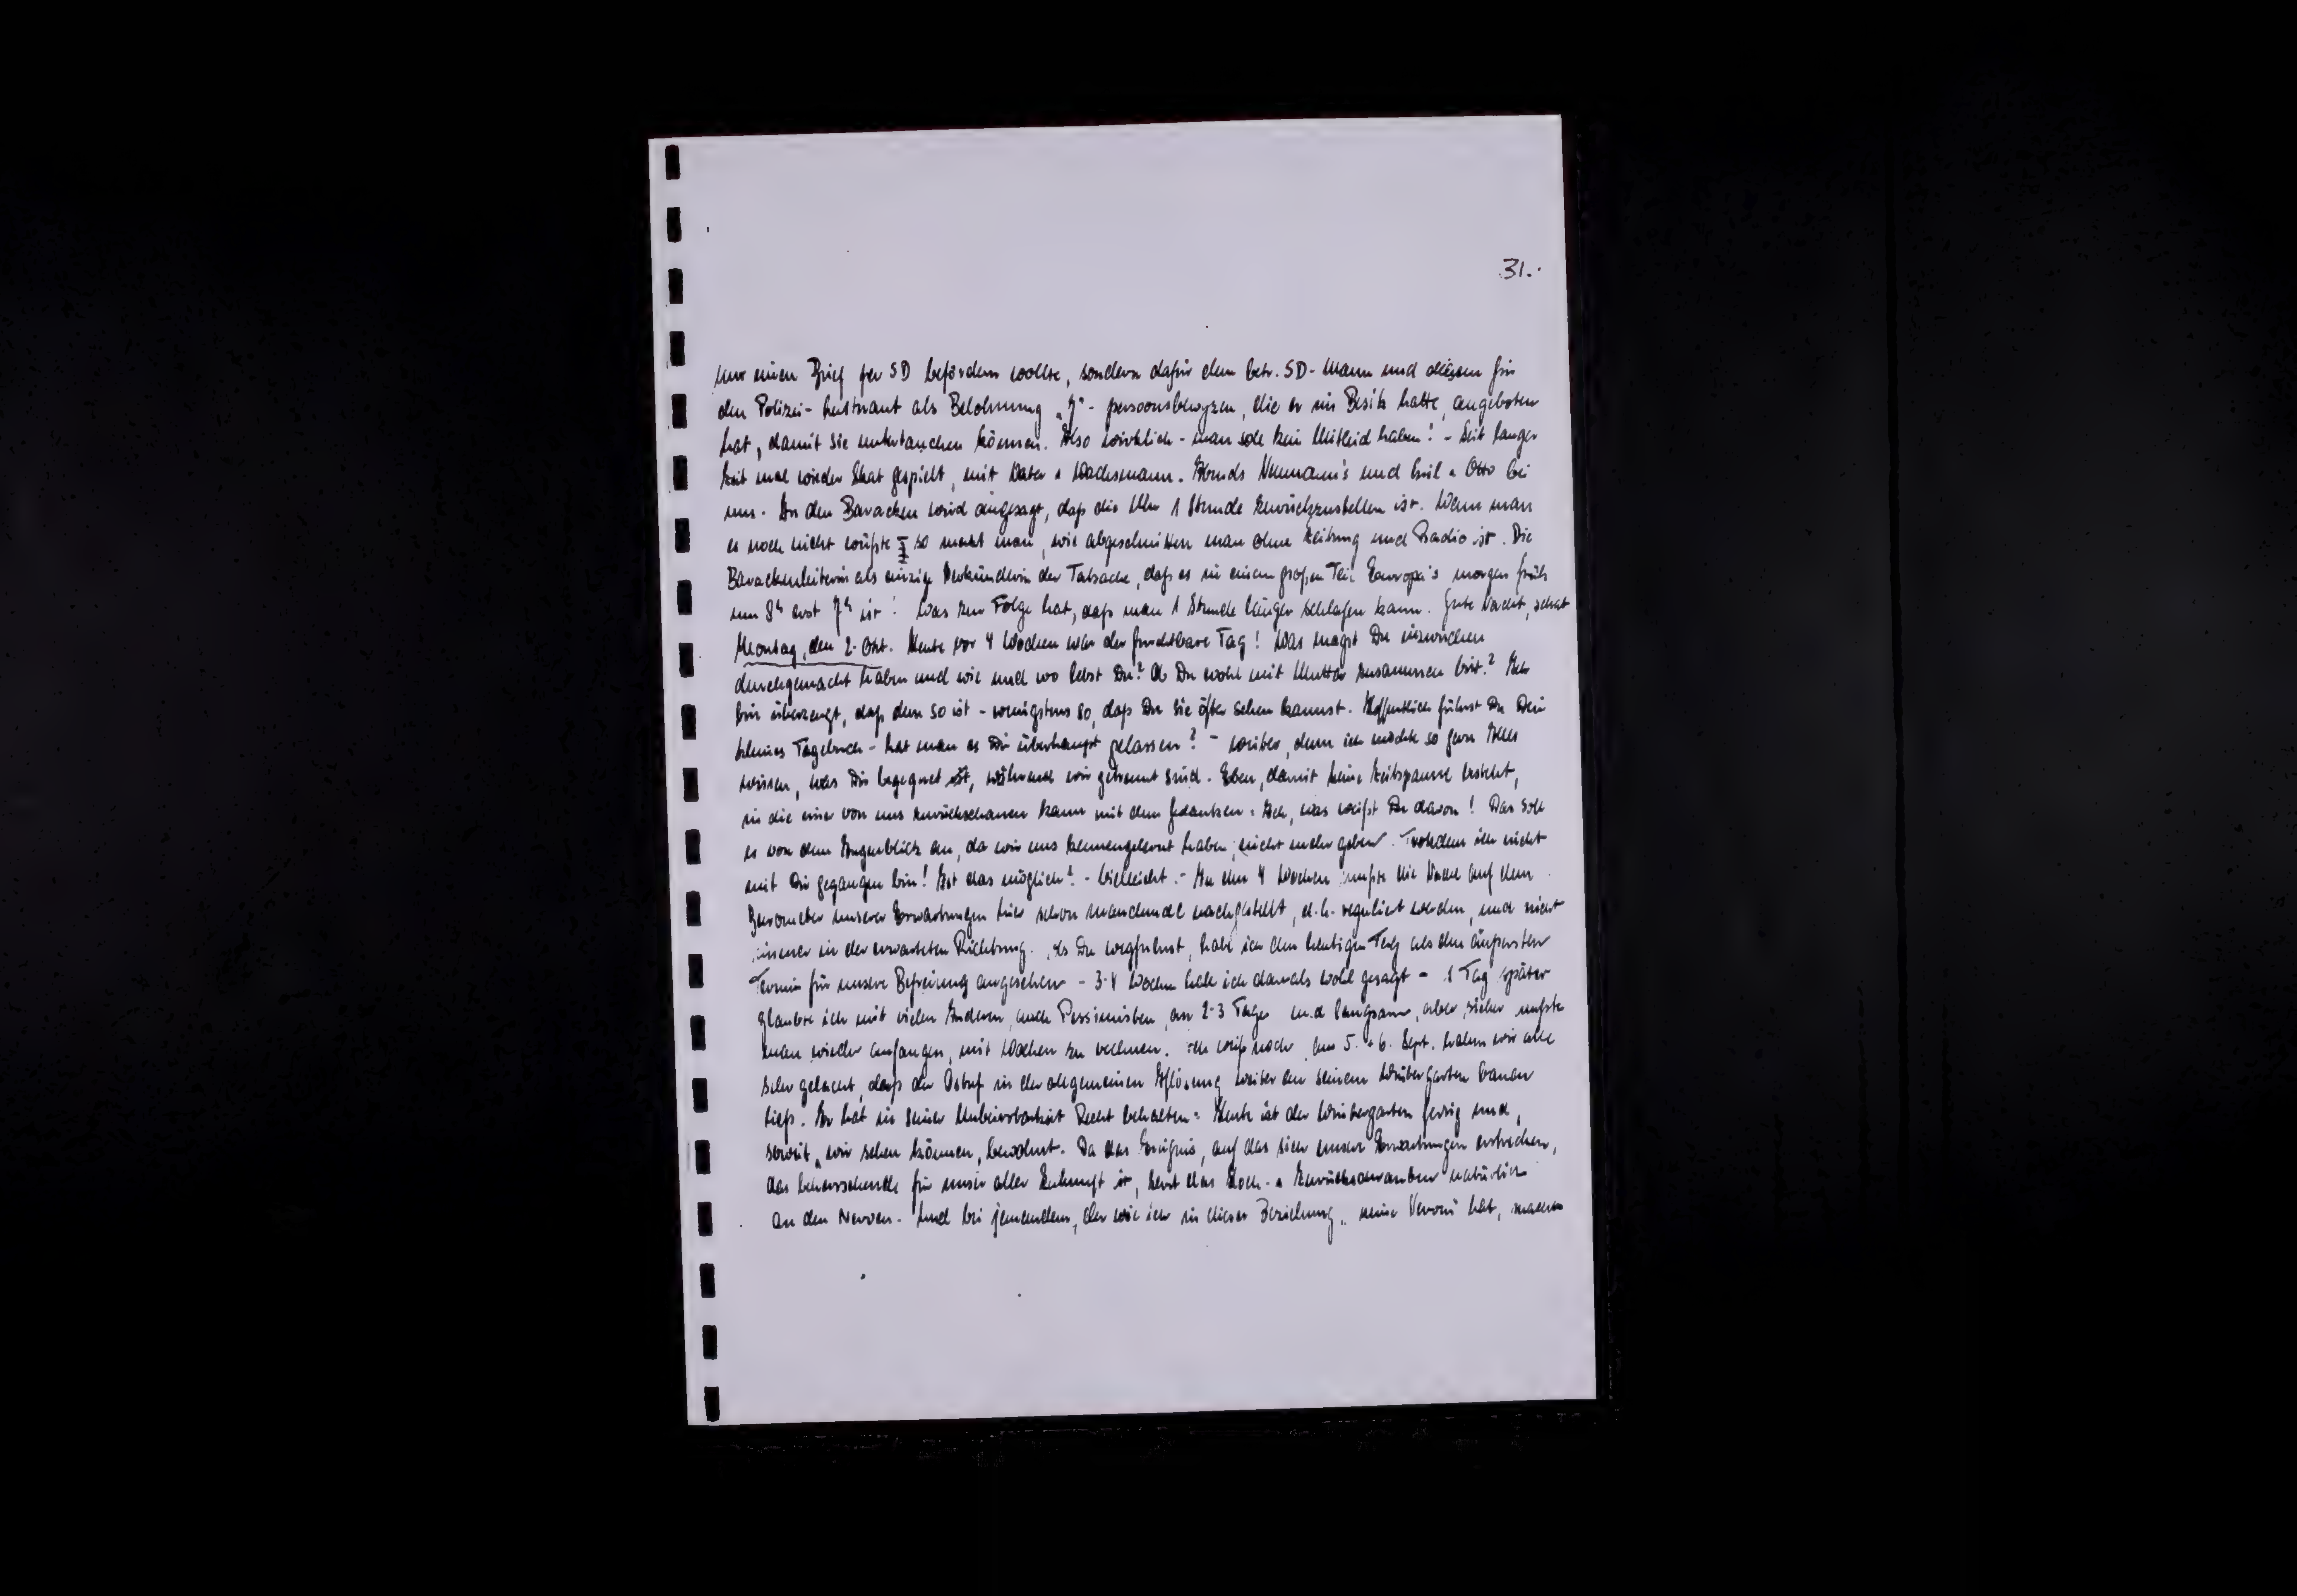 31.
nur einen Brief per SD befördern wollte, sondern dafür dem betr. SD-Mann und diesem für
den Polizei-Leutnant als Belohnung „J"-persoonsbewyzen, die er im Besitz hatte, angeboten
hat, damit sie untertauchen können. Also wirklich - man soll kein Mitleid haben! - Seit langer
Zeit mal wieder Skat gespielt, mit Vater + Wachsmann. Abends Neumann's und Emil + Otto bei
uns. In den Baracken wird angesagt, daß die Uhr 1 Stunde zurückzustellen ist. Wenn man
es noch nicht wüßte so merkt man, wie abgeschnitten man ohne Zeitung und Radio ist. Die
Barackenleiterin als einzige Verkünderin der Tatsache, daß es in einem großen Teil Europa's morgen früh
um 8h erst 7h ist! Was zur Folge hat, daß man 1 Stunde länger schlafen kann. Gute Nacht, schat
Montag, den 2. Okt. Heute vor 4 Wochen war der furchtbare Tag! Was magst Du inzwischen
durchgemacht haben und wie und wo lebst Du? Ob Du wohl mit Mutter zusammen bist? Ich
bin überzeugt, daß dem so ist - wenigstens so, daß Du sie öfter sehen kannst. Hoffentlich führst Du Dein
kleines Tagebuch - hat man es Dir überhaupt gelassen? - weiter, denn ich möchte so gern Alles
wissen, was Dir begegnet ist, während wir getrennt sind. Eben, damit keine Zeitspanne besteht,
in die einer von uns zurückschauen kann mit dem Gedanken: Ach, was weißt Du davon! Das soll
es von dem Augenblick an, da wir uns kennengelernt haben, nicht mehr geben. Trotzdem ich nicht
mit Dir gegangen bin! Ist das möglich? - Vielleicht. - In den 4 Wochen mußte die Nadel auf dem
Barometer unserer Erwartungen hier schon manchmal nachgestellt, d.h. reguliert werden, und nicht
immer in der erwarteten Richtung. Als Du wegfuhrst, habe ich den heutigen Tag als den äußersten
Termin für unsere Befreiung angesehen - 3-4 Wochen habe ich damals wohl gesagt - 1 Tag später
glaubte ich mit vielen Anderen, auch Pessimisten, an 2-3 Tage und langsam, aber sicher mußte
man wieder anfangen, mit Wochen zu rechnen. Ich weiß noch, am 5. + 6. Sept. haben wir alle
sehr gelacht, daß der in der allgemeinen Auflösung weiter an seinem Wintergarten bauen
ließ. Er hat in seiner Unbeirrbarkeit Recht behalten: Heute ist der Wintergarten fertig und,
soweit wir sehen können, bewohnt. Da das Ereignis, auf das sich unsere Erwartungen erstrecken,
das beherrschende für unser aller Zukunft ist, zerrt das Hoch- + Zurückschrauben natürlich
an den Nerven. Und bei jemandem, der wie ich in dieser Beziehung keine Nerven hat, machen